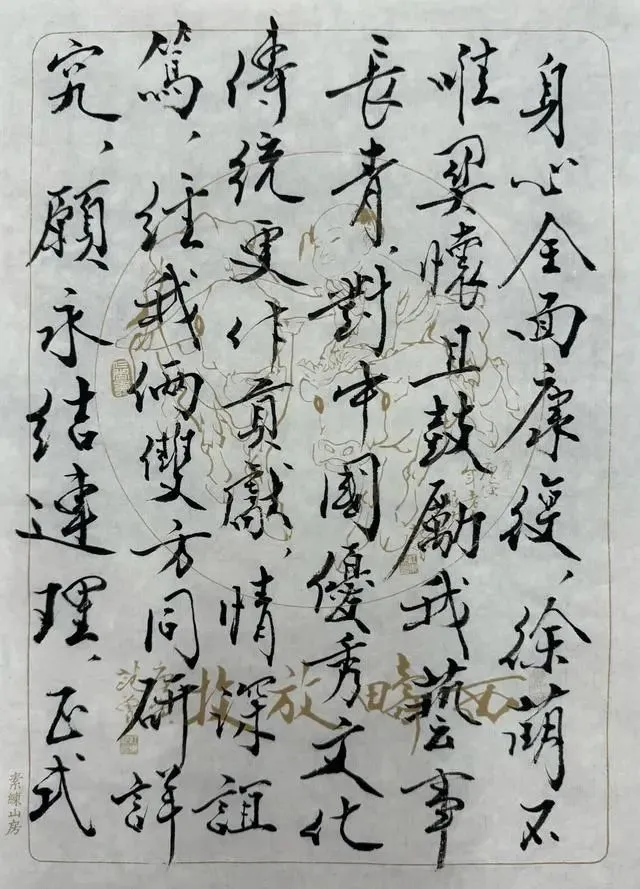 身心全面康復、徐萌不
唯翼懷且鼓勵我藝事
長青、對中國優秀文化
傳統更作貢獻、情深誼
篤、經我倆雙方同研詳
究、願永結連理、正式
西疇放牧
素練山房